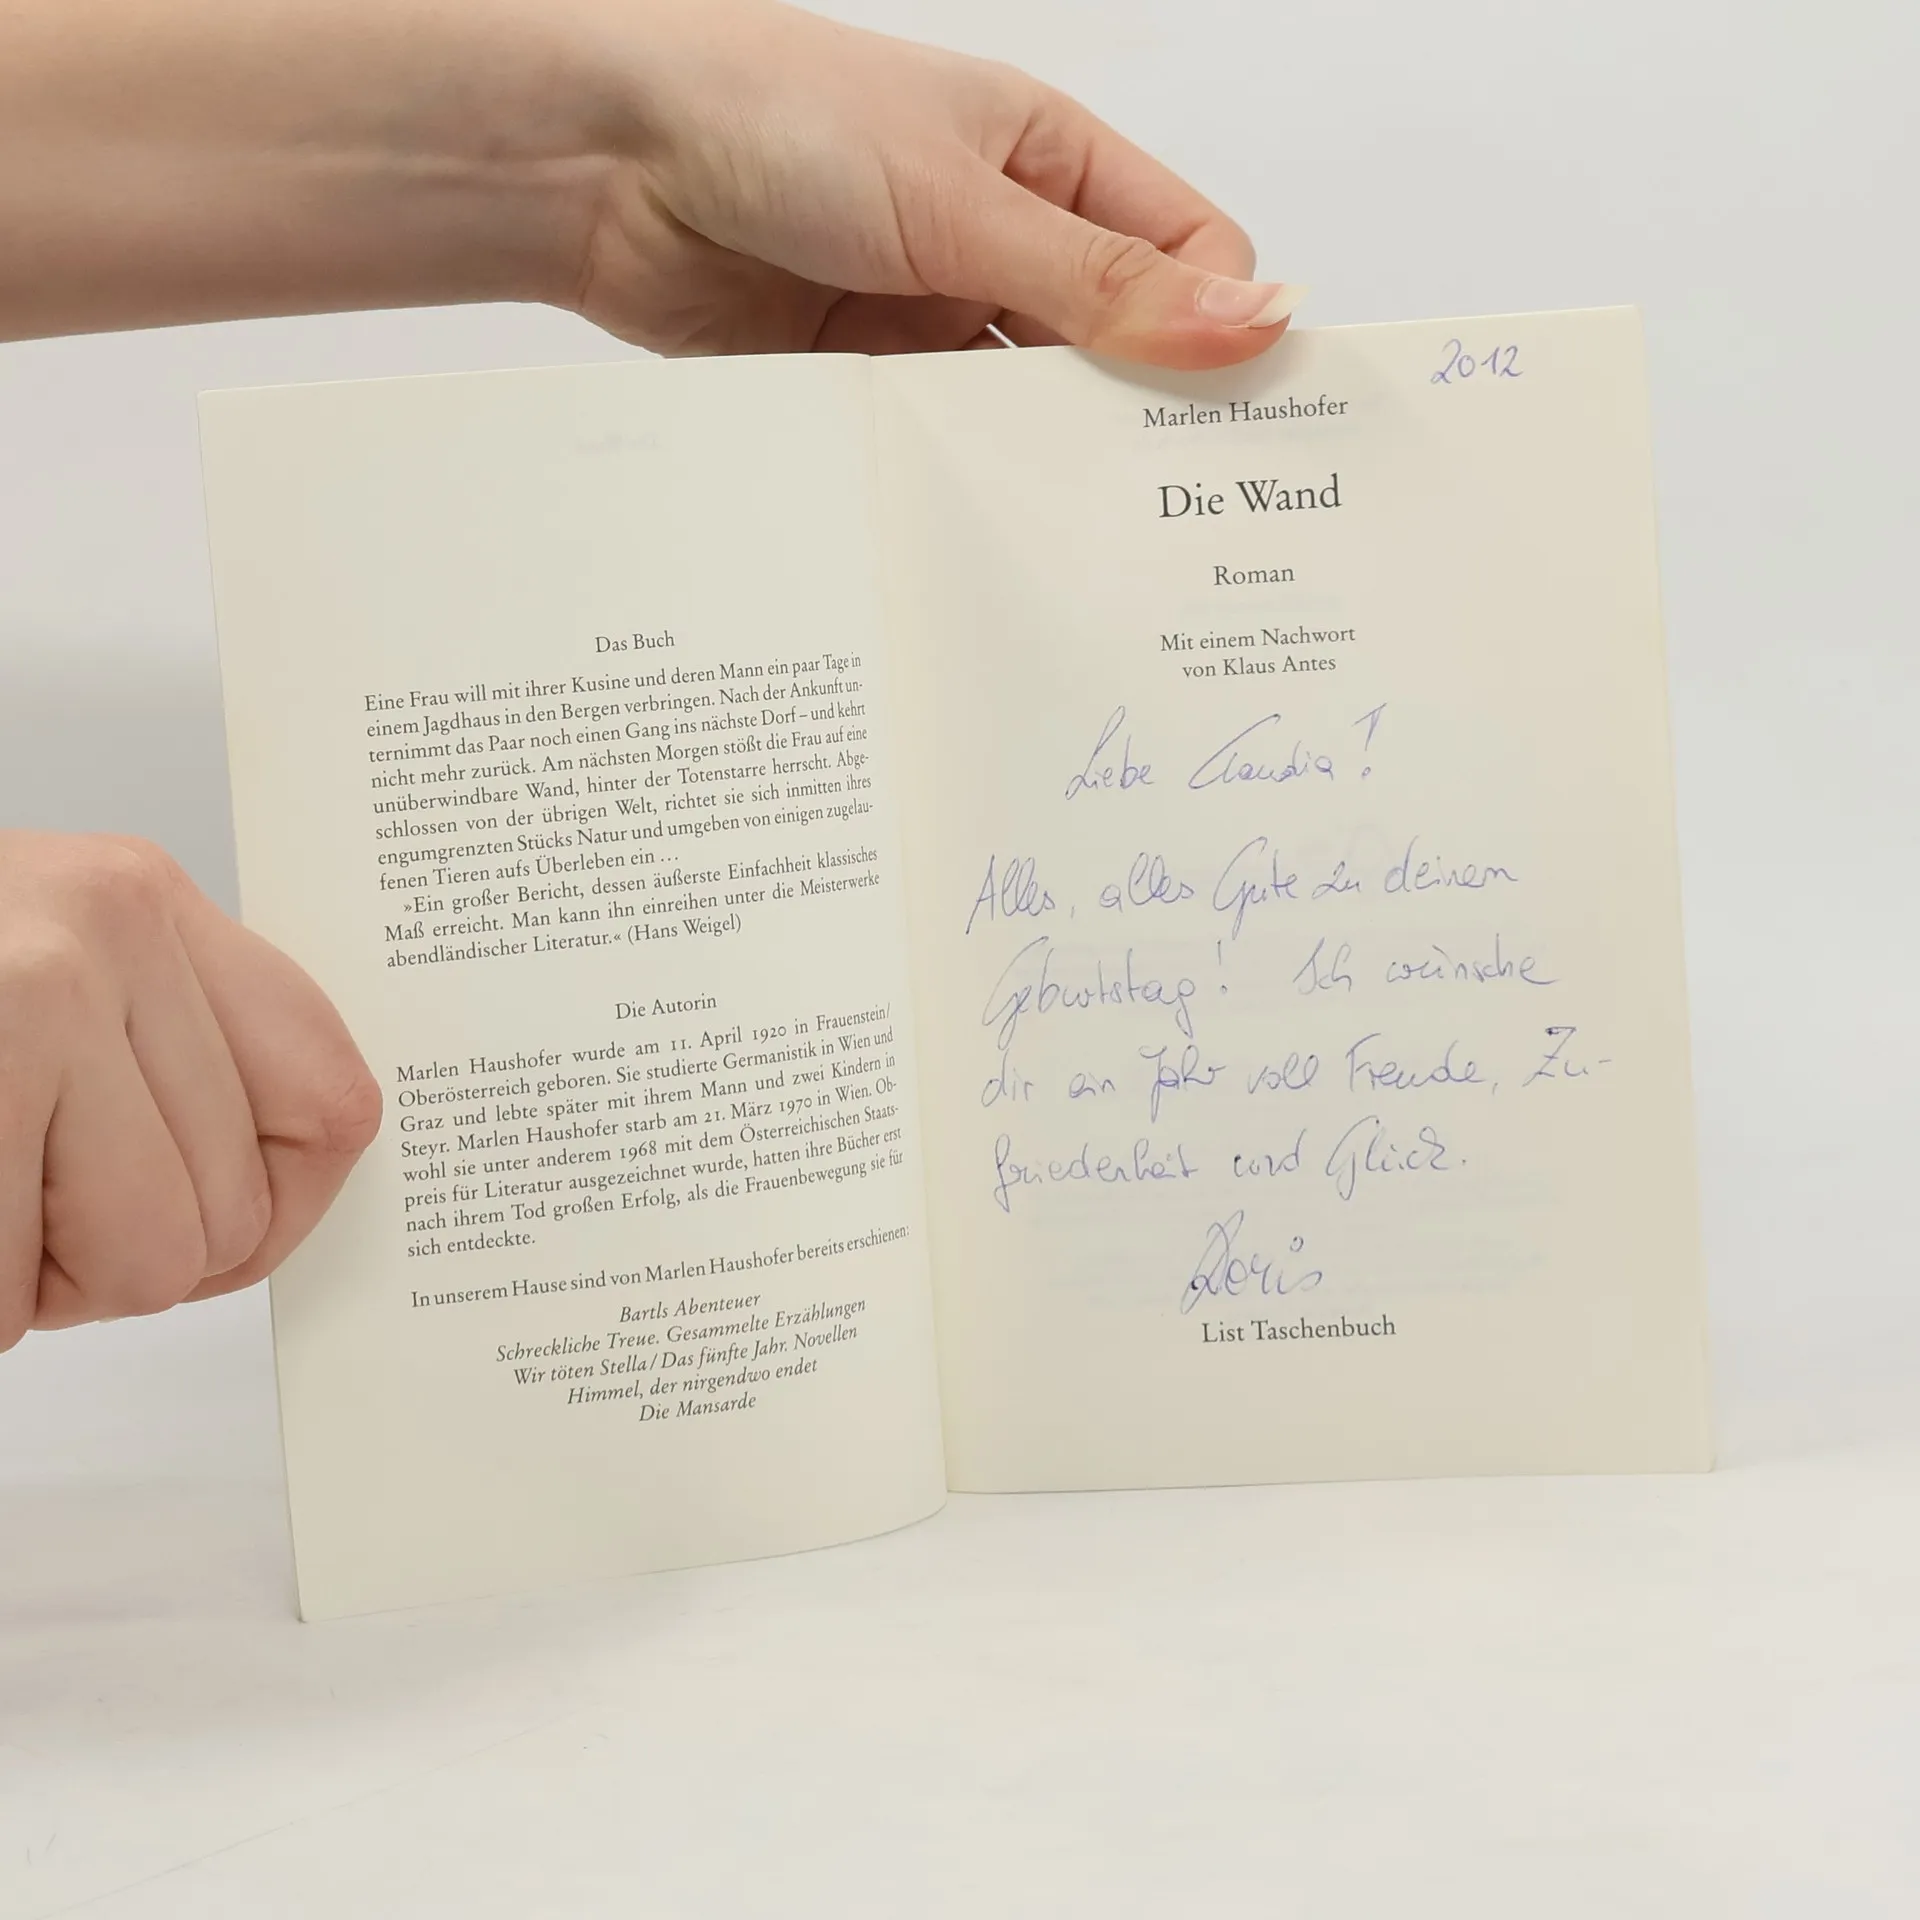 Das Buch
Eine Frau will mit ihrer Kusine und deren Mann ein paar Tage in
einem Jagdhaus in den Bergen verbringen. Nach der Ankunft un-
ternimmt das Paar noch einen Gang ins nächste Dorf – und kehrt
nicht mehr zurück. Am nächsten Morgen stößt die Frau auf eine
unüberwindbare Wand, hinter der Totenstarre herrscht. Abge-
schlossen von der übrigen Welt, richtet sie sich inmitten ihres
engumgrenzten Stücks Natur und umgeben von einigen zugelau-
fenen Tieren aufs Überleben ein ...
»Ein großer Bericht, dessen äußerste Einfachheit klassisches
Maß erreicht. Man kann ihn einreihen unter die Meisterwerke
abendländischer Literatur.« (Hans Weigel)
Die Autorin
Marlen Haushofer wurde am 11. April 1920 in Frauenstein/
Oberösterreich geboren. Sie studierte Germanistik in Wien und
Graz und lebte später mit ihrem Mann und zwei Kindern in
Steyr. Marlen Haushofer starb am 21. März 1970 in Wien. Ob-
wohl sie unter anderem 1968 mit dem Österreichischen Staats-
preis für Literatur ausgezeichnet wurde, hatten ihre Bücher erst
nach ihrem Tod großen Erfolg, als die Frauenbewegung sie für
sich entdeckte.
In unserem Hause sind von Marlen Haushofer bereits erschienen:
Bartls Abenteuer
Schreckliche Treue. Gesammelte Erzählungen
Wir töten Stella / Das fünfte Jahr. Novellen
Himmel, der nirgendwo endet
Die Mansarde
2012
Marlen Haushofer
Die Wand
Roman
Mit einem Nachwort
von Klaus Antes
Liebe Claudia!
Alles, alles Gute zu deinem
Geburtstag! Ich wünsche
dir ein Jahr voll Freude, Zu-
friedenheit und Glück.
Doris
List Taschenbuch